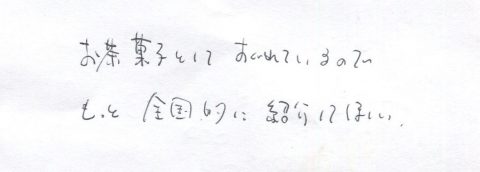 お茶菓子として すぐれているので
もっと 全国的に 紹介してほしい.